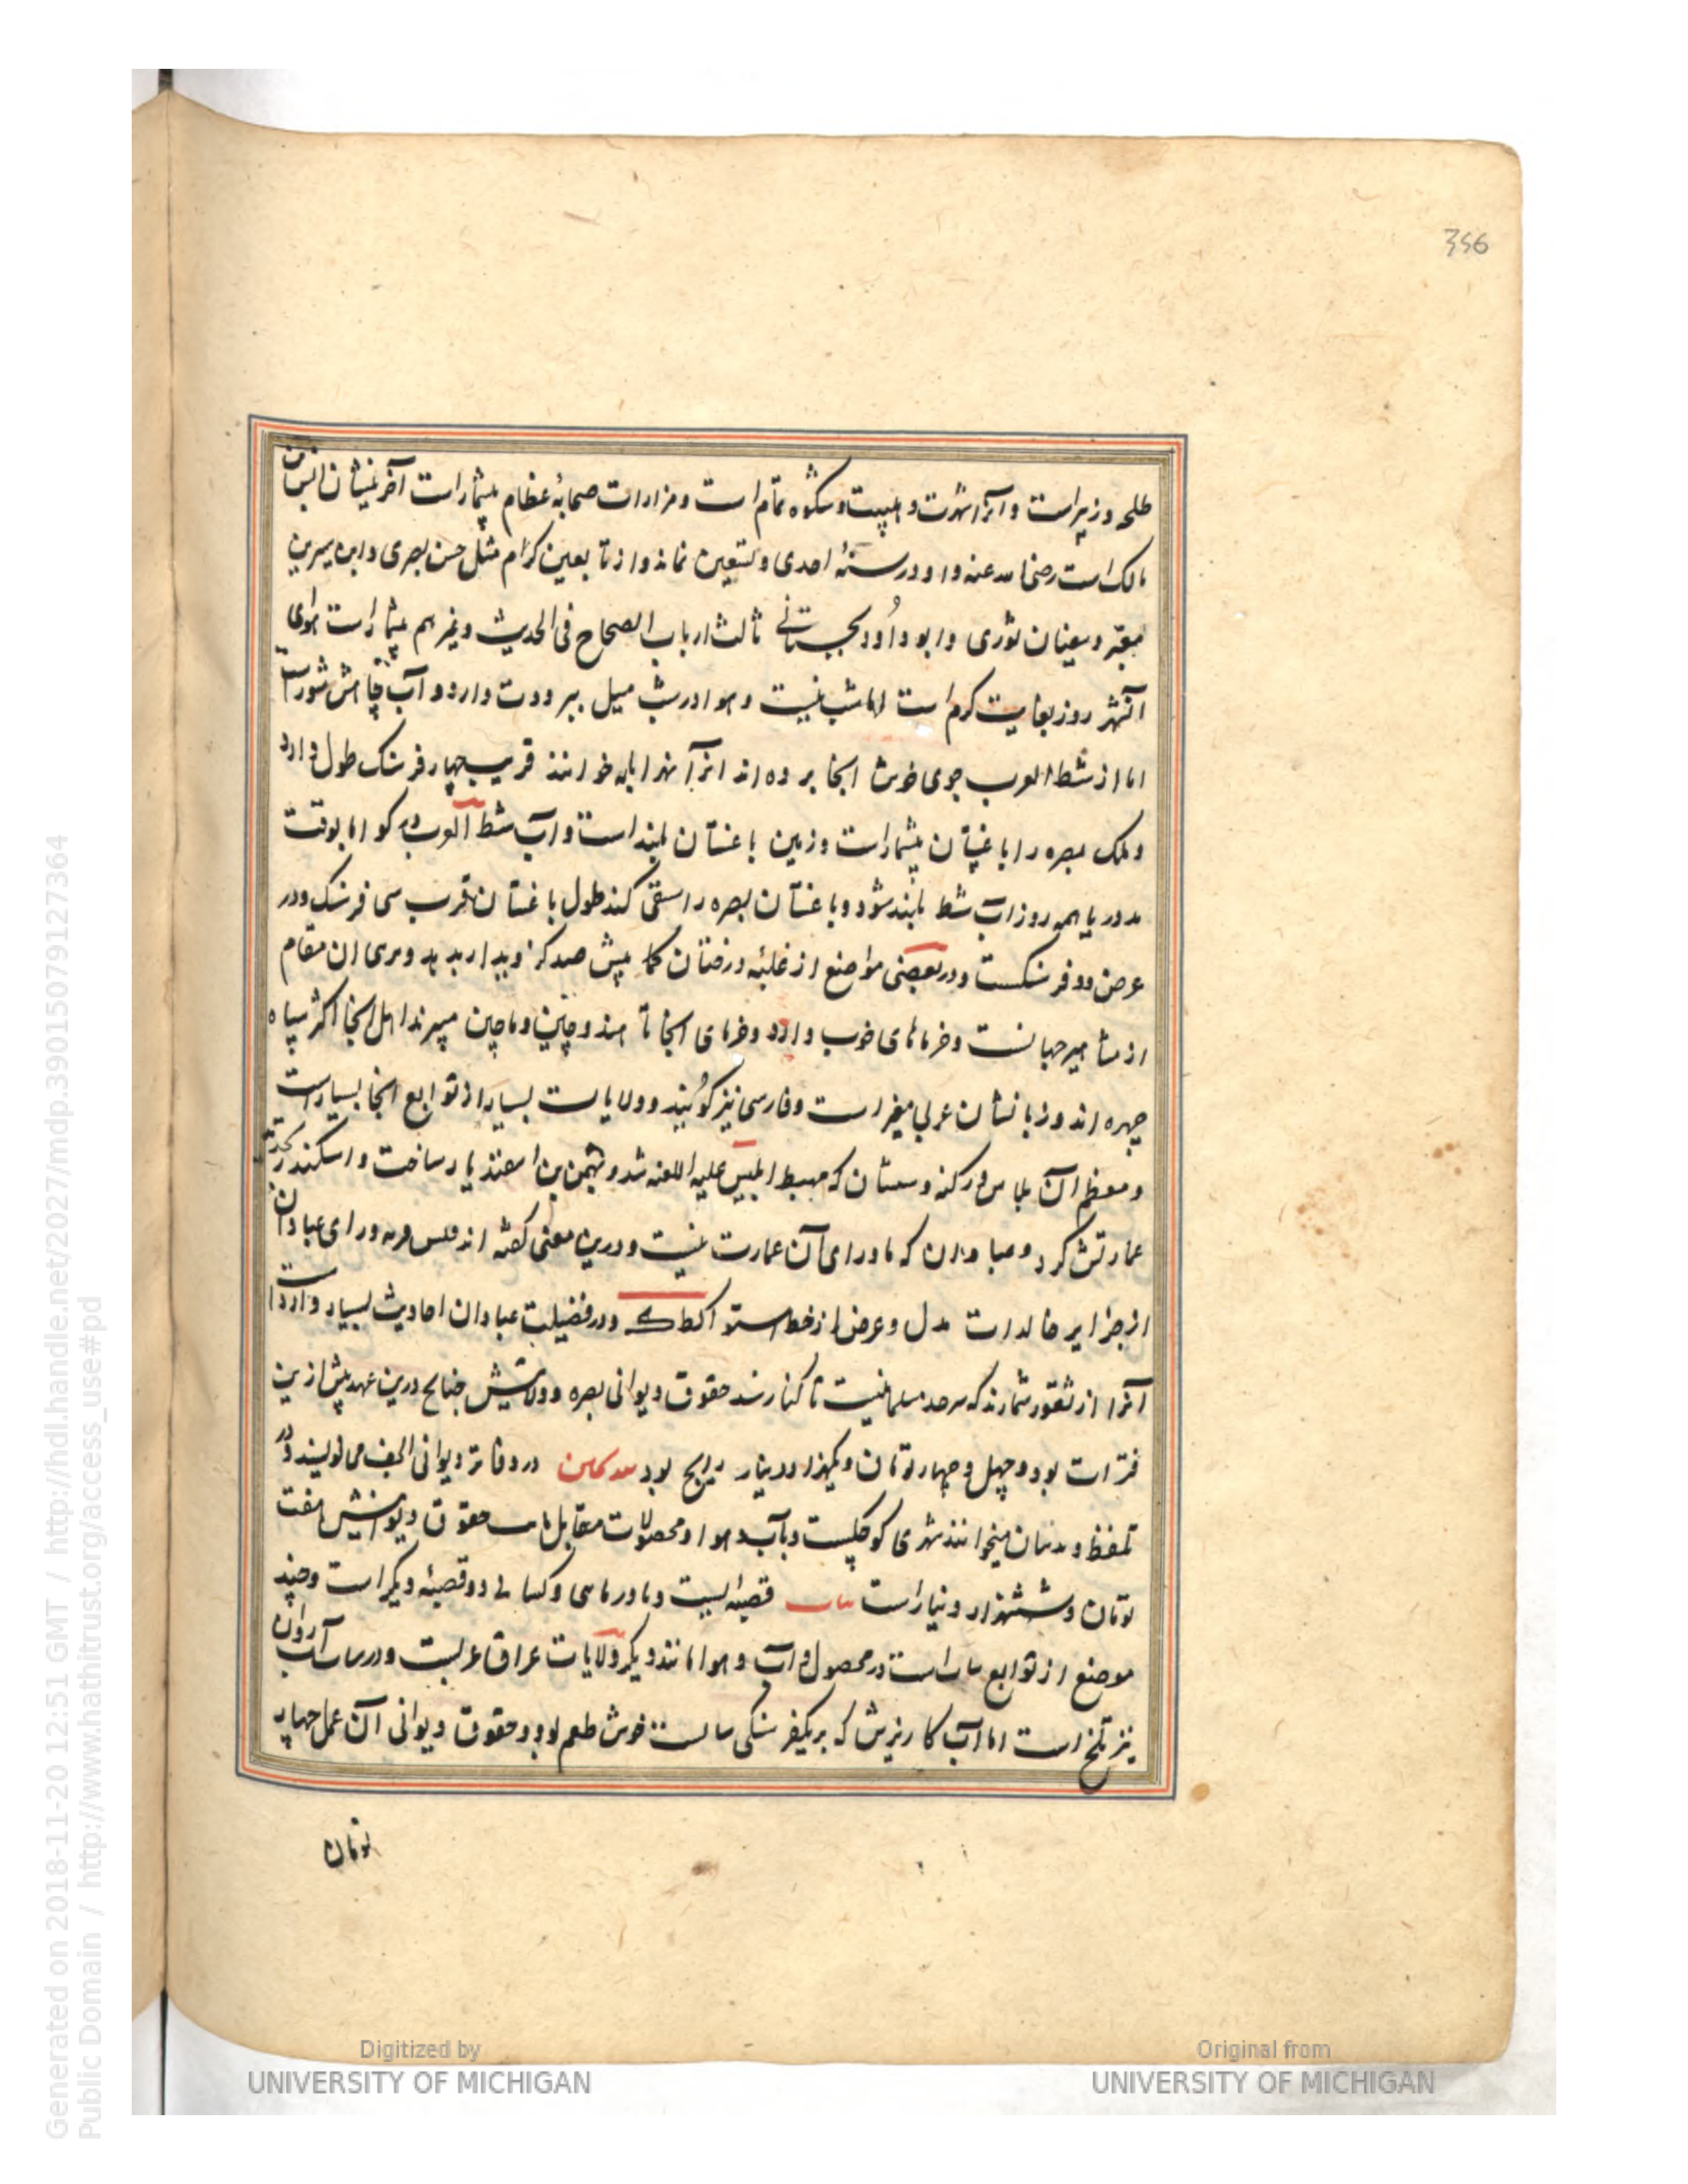 356
طلحه و زبیر است و آنرا شهرت و هیبت و شکوه تمام است و مزارات صحابهٔ عظام بیشمار است آخرینشان انس بن
مالک است رضی الله عنه و او در سنهٔ احدی و تسعین نماند و از تابعین کرام مثل حسن بصری و ابن سیرین
معبر و سفیان ثوری و ابو داود سجستانی ثالث ارباب الصحاح فی الحدیث و غیرهم بیشمار است هوای
آنشهر روز بغایت گرم است اما شب نیست و هوا در شب میل ببرودت دارد و آب چاهش شور است
اما از شط العرب جوی خوش آنجا برده اند انرا نهر ابله خوانند قریب چهار فرسنگ طول دارد
و ملک بصره را باغستان بیشمار است و زمین باغستان بلند است و آب شط العرب در گو اما بوقت
مد دریا همه روز آب شط بلند شود و باغستان بصره را سقی کند طول باغستان قرب سی فرسنگ و در
عرض دو فرسنگست و در بعضی مواضع از غلبهٔ درختان کما بیش صد گز دیدار بدید و مری ان مقام
از مشاهیر جهانست و خرماهای خوب دارد و خرمای آنجا تا هند و چین و ماچین میبرند اهل آنجا اکثر سیاه
چهره اند و زبانشان عربی مغیر است و فارسی نیز گویند و ولایات بسیار از توابع آنجا بسیار است
و معظم آن بلاس و زکنه و مسان که مهبط ابلیس علیه اللعنه شد و بهمن بن اسفندیار ساخت و اسکندر تجدید
عمارتش کرد و عبادان که ماورای آن عمارت نیست و درین معنی گفته اند لیس قریه ورای عبادان
از جزایر خالدات مدل و عرض از خط استوا کط ک و در فضیلت عبادان احادیث بسیار وارد است
آنرا از ثغور شمارند که سرحد مسلمانیست تا کنار سند حقوق دیوانی بصره و ولایتش چنانچ درین عهد پیش ازین
فترات بود و چهل و چهار تومان و یکهزار دینار رایج بود در دفاتر دیوانی الحف می نویسند و در
تلفظ و بندنیان میخوانند شهری کوچکست و بآب و هوا و محصولات مقابل حقوق دیوانیش هفت
تومان و ششهزار دینار است بیات قصبه ایست و بادرمای و کسائی دو قصبهٔ دیگر است و چند
موضع از توابع بیات است در محصول و آب و هوا مانند دیگر ولایات عراق عربست و در بیات آب روان
نیز تلخ است اما آب کاریزش که بر یکفرسنگی بیات خوش طعم بود و حقوق دیوانی آن عمل چهار
تومان
Generated on 2018-11-20 12:51 GMT / http://hdl.handle.net/2027/mdp.39015079127364
Public Domain / http://www.hathitrust.org/access_use#pd
Digitized by
UNIVERSITY OF MICHIGAN
Original from
UNIVERSITY OF MICHIGAN